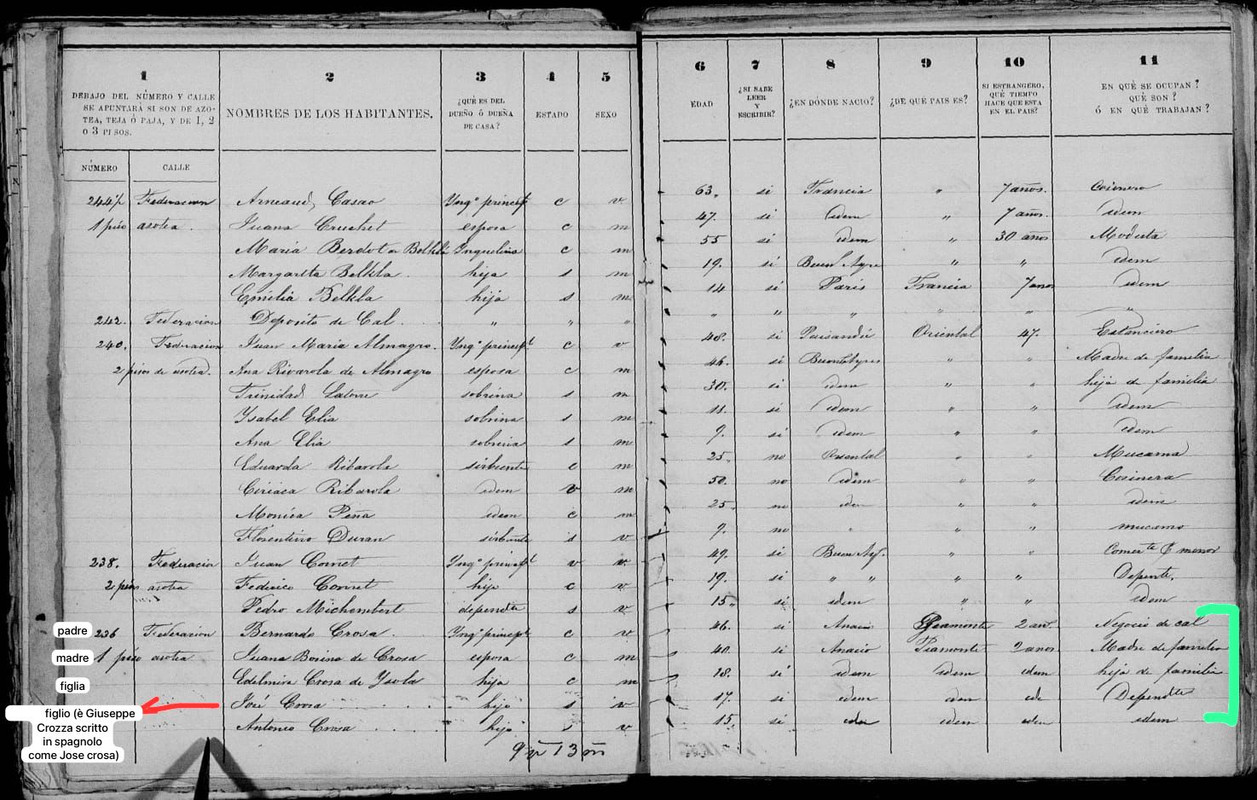 1
2
3
4
5
6
7
8
9
10
11
DEBAJO DEL NÚMERO Y CALLE
SE APUNTARÁ SI SON DE AZO-
TEA, TEJA Ó PAJA, Y DE 1, 2
O 3 PISOS.
NOMBRES DE LOS HABITANTES.
¿QUÉ ES DEL
DUEÑO Ó DUEÑA
DE CASA?
ESTADO
SEXO
EDAD
¿SI SABE
LEER
Y
ESCRIBIR?
¿EN DÓNDE NACIO?
¿DE QUÉ PAIS ES?
SI ESTRANGERO,
QUÉ TIEMPO
HACE QUE ESTA
EN EL PAIS?
EN QUÉ SE OCUPAN?
QUÉ SON?
Ó EN QUÉ TRABAJAN?
NÚMERO
CALLE
244½ Federacion Arnaud Casao Ynqº princip c v 63. si Francia " 7 años. Cocinero
1 piso asotea. Juana Cruchet esposa c m 47. si idem " 7 años. idem
Maria Berdot Ynquilina c m 55 si idem " 30 años Modista
Margarita Belkla hija s m 19. si " " idem
Emilia Belkla hija s m 14 si Paris Francia 7 anos idem
242. Federacion Deposito de Cal " " " " " " " " "
240. Federacion Juan Maria Almagro. Ynqº principl c v 48. si Paisandú Oriental 47. Estanciero
2 pisos de asotea. Ana Ribarola de Almagro esposa c m 46. si " " Madre de familia
Trinidad sobrina s m 30. si idem " " hija de familia
Ysabel Elia sobrina s m 11. si idem " " idem
Ana Elia sobrina s m 9. si idem " " idem
Eduarda Ribarola sirbiente c m 25 no Oriental " " Mucama
Ciriaca Ribarola idem v m 50. no idem " " Cocinera
Monica Peña idem c m 25 no idem " " idem
Florentino Duran sirbiente s v 9. no " " " mucamo
238. Federacion Juan Cornet Ynqº principl v v 49. si " " menor
2 pisos asotea Federico Cornet hijo c v 19. si " " " " Depente.
Pedro Michembert dependte s v 15 si idem " " idem
padre
236 Federacion Bernardo Crosa. Ynqº principl c v 46. si Piamonte Negocio de cal
madre
1 piso asotea Juana Bosino de Crosa esposa c m 40. si Piamonte 2 anos Madre de familia
figlia
Edelmira Crosa de Ysola hija c m 18. si idem idem idem hija de familia
José Crosa hijo s v 17. si idem idem Dependte
figlio (è Giuseppe
Crozza scritto
in spagnolo
come Jose crosa)
Antonio Crosa hijo s v 15. si idem idem idem idem
9 v 13 m